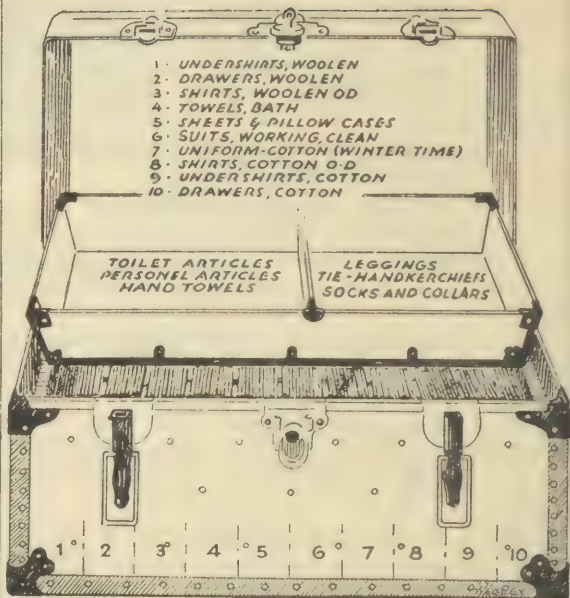 1 · UNDERSHIRTS, WOOLEN
2 · DRAWERS, WOOLEN
3 · SHIRTS, WOOLEN OD
4 · TOWELS, BATH
5 · SHEETS & PILLOW CASES
6 · SUITS, WORKING, CLEAN
7 · UNIFORM-COTTON (WINTER TIME)
8 · SHIRTS, COTTON O·D
9 · UNDERSHIRTS, COTTON
10 · DRAWERS, COTTON
TOILET ARTICLES
PERSONEL ARTICLES
HAND TOWELS
LEGGINGS
TIE-HANDKERCHIEFS
SOCKS AND COLLARS
1 2 3 4 5 6 7 8 9 10